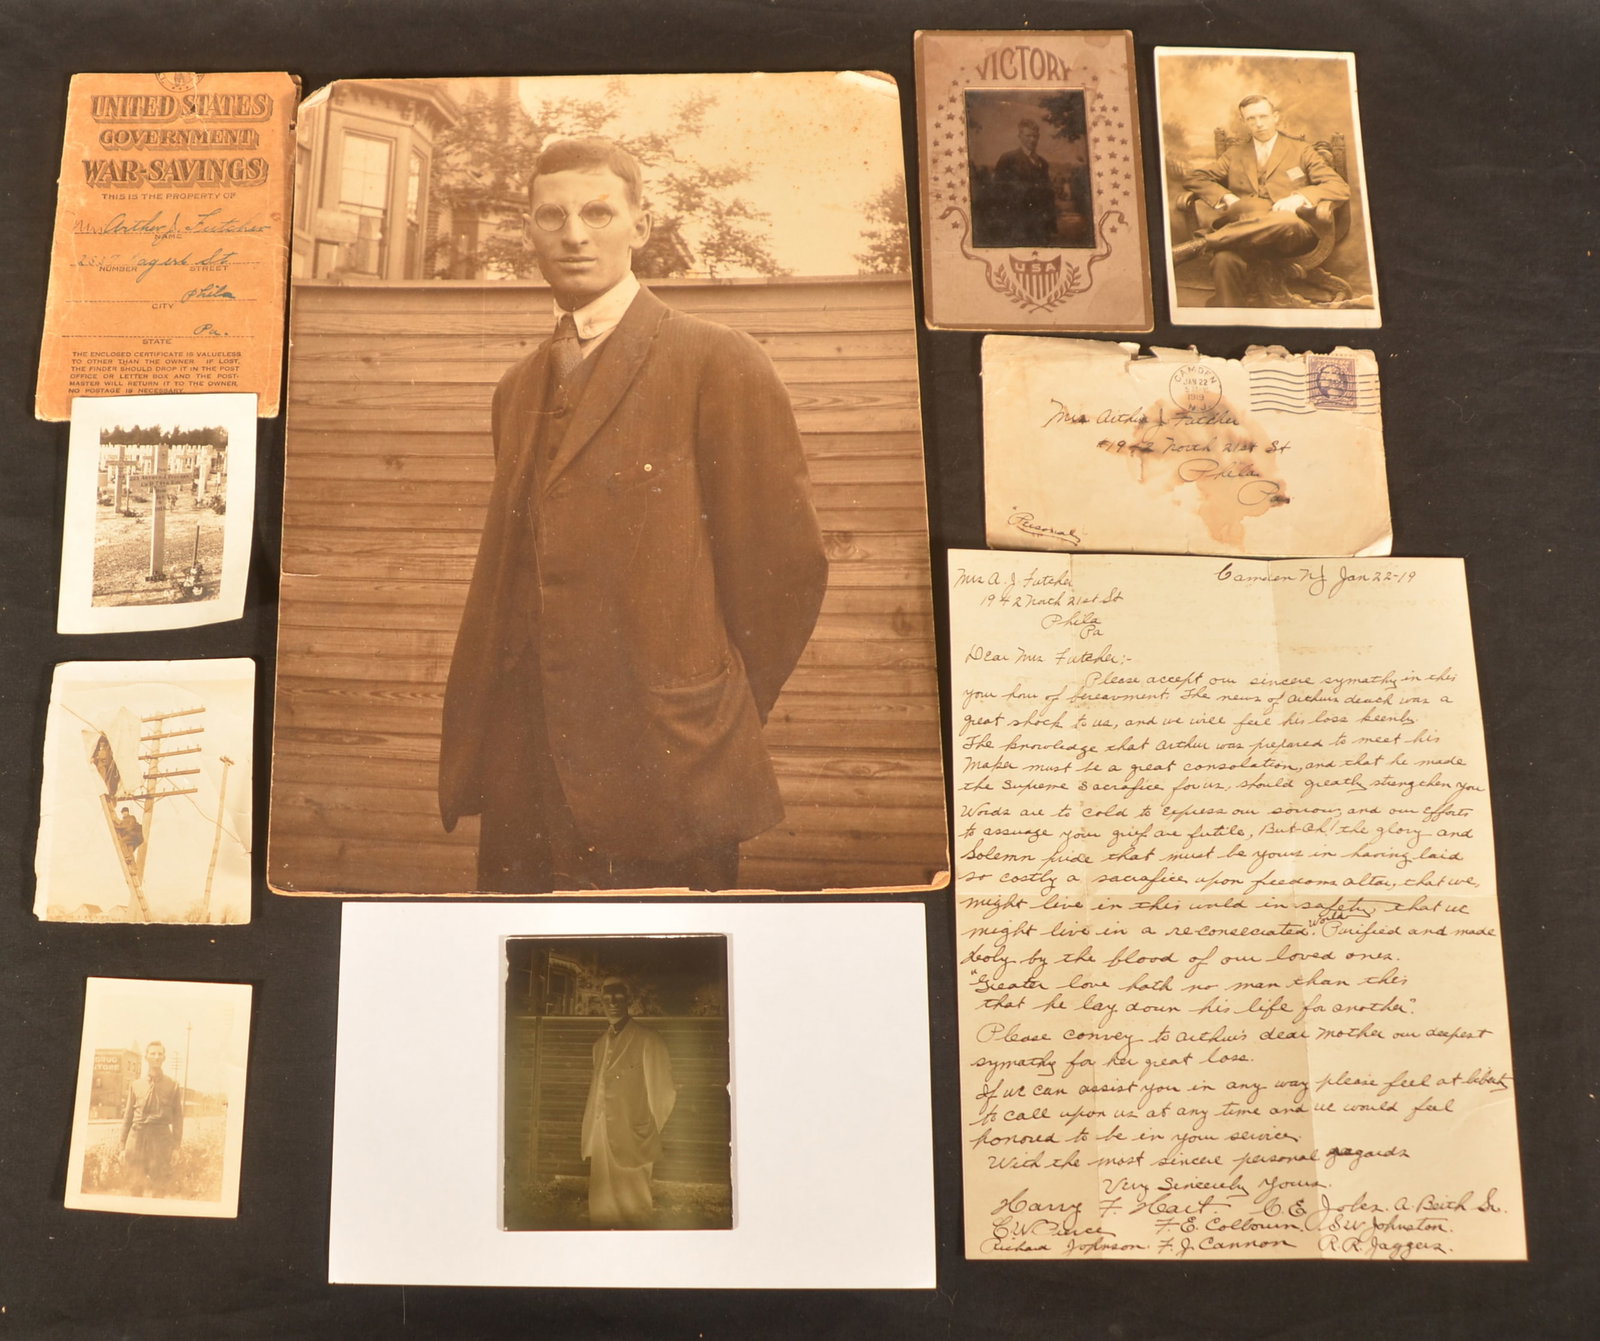 UNITED STATES
GOVERNMENT
WAR-SAVINGS
THIS IS THE PROPERTY OF
Mrs Arthur J. Futcher
NAME
St.
NUMBER STREET
Phila
CITY
Pa.
STATE
THE ENCLOSED CERTIFICATE IS VALUELESS
TO OTHER THAN THE OWNER. IF LOST,
THE FINDER SHOULD DROP IT IN THE POST
OFFICE OR LETTER BOX AND THE POST-
MASTER WILL RETURN IT TO THE OWNER,
NO POSTAGE IS NECESSARY.
VICTORY
USA
CAMDEN
JAN 22
1919
N.J.
Mrs Arthur J Futcher
#1942 North 21st St
Phila
Pa
"Personal"
DRUG
STORE
Camden NJ Jan 22-19
Mrs A. J Futcher
1942 North 21st St
Phila
Pa
Dear Mrs Futcher:-
Please accept our sincere symathy in this
your hour of bereavment. The news of Arthurs death was a
great shock to us, and we will feel his loss keenly.
The knowledge that Arthur was prepared to meet his
Maker must be a great consolation, and that he made
the Supreme Sacrafice for us, should greatly strengthen you
Words are to cold to express our sorrow, and our efforts
to assuage your grief are futile, But Oh! the glory and
Solemn pride that must be yours in having laid
so costly a sacrafice upon freedoms altar, that we,
might live in this world in safety, that we
might live in a re-consecrated World. Purified and made
holy by the blood of our loved ones.
"Greater love hath no man than this
that he lay down his life for another".
Please convey to Arthur's dear Mother our deepest
symathy for her great loss.
If we can assist you in any way please feel at liberty
to call upon us at any time and we would feel
honored to be in your service.
With the most sincere personal regards
Very Sincerely Yours.
Harry F. Hart. C. E. A. Beith Sr.
C. W. Pierce F. E. Colbourn. S. W Johnston.
Richard Johnson. F. J. Cannon R. R. Jaggers.